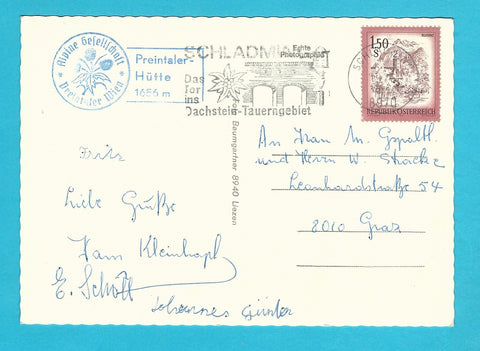 Alpine Gesellschaft
Preintaler Wien
Preintaler-
Hütte
1656 m
SCHLADMING
Echte
Photographie
Das
Tor
ins
Dachstein-Tauerngebiet
1,50
S
REPUBLIK ÖSTERREICH
8970
Baumgartner 8940 Liezen
Fritz
Liebe Grüße
Hans Kleinhapl
E. Schött
Johannes Günter
An Frau M. Gspaltl
und Herrn W. Stracke
Leonhardstraße 54
8010 Graz